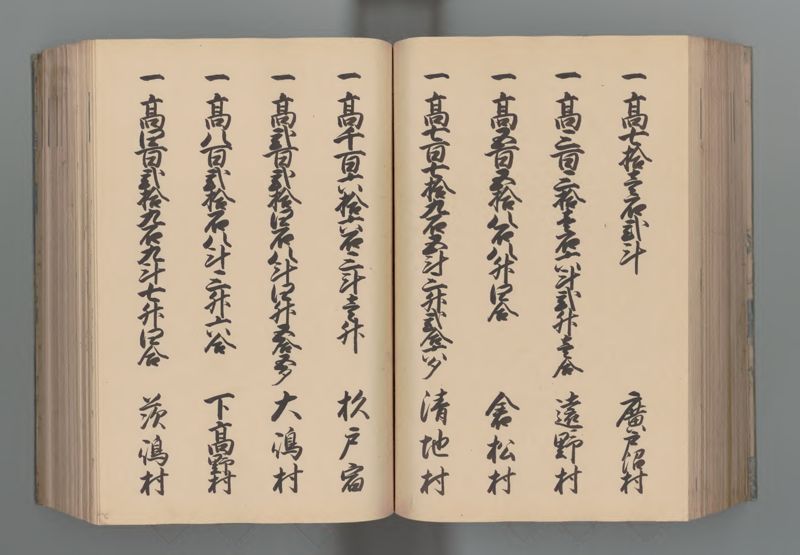 一 高七拾壱石弐斗 廣戸沼村
一 高三百三拾壱石六斗弐升壱合 遠野村
一 高五百五拾八石八升四合 倉松村
一 高七百七拾九石五斗三升弐合六夕 清地村
一 高千百六拾六石三斗壱升 杦戸宿
一 高弐百弐拾四石八斗四升五合五夕 大嶋村
一 高八百弐拾石八斗三升六合 下高野村
一 高四百弐拾九石九斗七升四合 茨嶋村